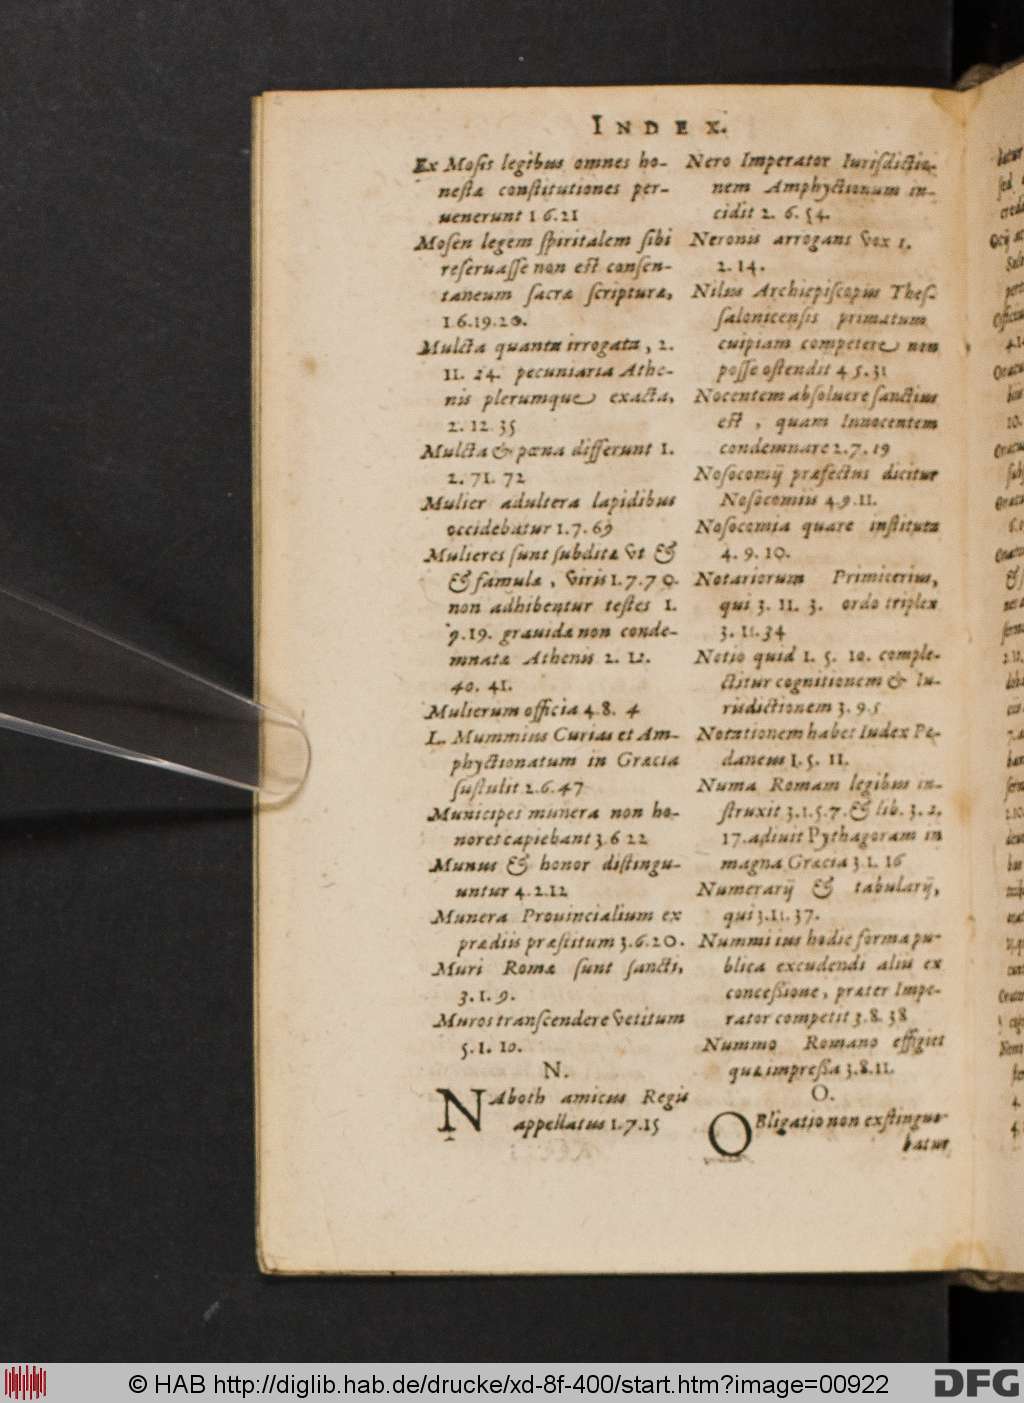 INDEX.
Ex Mosis legibus omnes ho-
nestæ constitutiones per-
uenerunt 1 6.21
Mosen legem spiritalem sibi
reseruasse non est consen-
taneum sacræ scripturæ,
1 6.19.20.
Mulcta quanta irrogata, 2.
11. 24. pecuniaria Athe-
nis plerumque exacta,
2. 12 35
Mulcta & pœna differunt 1.
2. 71. 72
Mulier adultera lapidibus
occidebatur 1.7.69
Mulieres sunt subditæ vt &
& famulæ, viris 1.7.70.
non adhibentur testes 1.
9.19. grauidæ non conde-
mnatæ Athenis 2. 12.
40. 41.
Mulierum officia 4.8. 4
L. Mummius Curias et Am-
phyctionatum in Græcia
sustulit 2.6.47
Municipes munera non ho-
nores capiebant 3 6 22
Munus & honor distingu-
untur 4.2.12
Munera Prouincialium ex
prædiis præstitum 3.6.20.
Muri Romæ sunt sancti,
3.1.9.
Muros transcendere vetitum
5.1. 10.
N.
NAboth amicus Regis
appellatus 1.7.15
Nero Imperator Iurisdictio-
nem Amphyctionum in-
cidit 2. 6. 54.
Neronis arrogans vox 1.
2.14.
Nilus Archiepiscopus Thes-
salonicensis primatum
cuipiam competere non
posse ostendit 4 5.31
Nocentem absoluere sanctius
est, quam Innocentem
condemnare 2.7.19
Nosocomij præfectus dicitur
Nosocomus 4.9.11.
Nosocomia quare instituta
4. 9. 10.
Notariorum Primicerius,
qui 3. 11. 3. ordo triplex
3. 11.34
Notio quid 1. 5. 10. comple-
ctitur cognitionem & Iu-
risdictionem 3. 9.5
Notationem habet Iudex Pe-
daneus 1. 5. 11.
Numa Romam legibus in-
struxit 3.1.5.7. & lib. 3.2.
17. adiuit Pythagoram in
magna Græcia 3.1. 16
Numerarij & tabularij,
qui 3.11.37.
Nummi ius hodie forma pu-
blica excudendi aliis ex
concessione, præter Impe-
rator competit 3.8.38
Nummo Romano effigies
quæ impressa 3.8.11.
O.
OBligatio non exstingue-
batur
© HAB http://diglib.hab.de/drucke/xd-8f-400/start.htm?image=00922
DFG